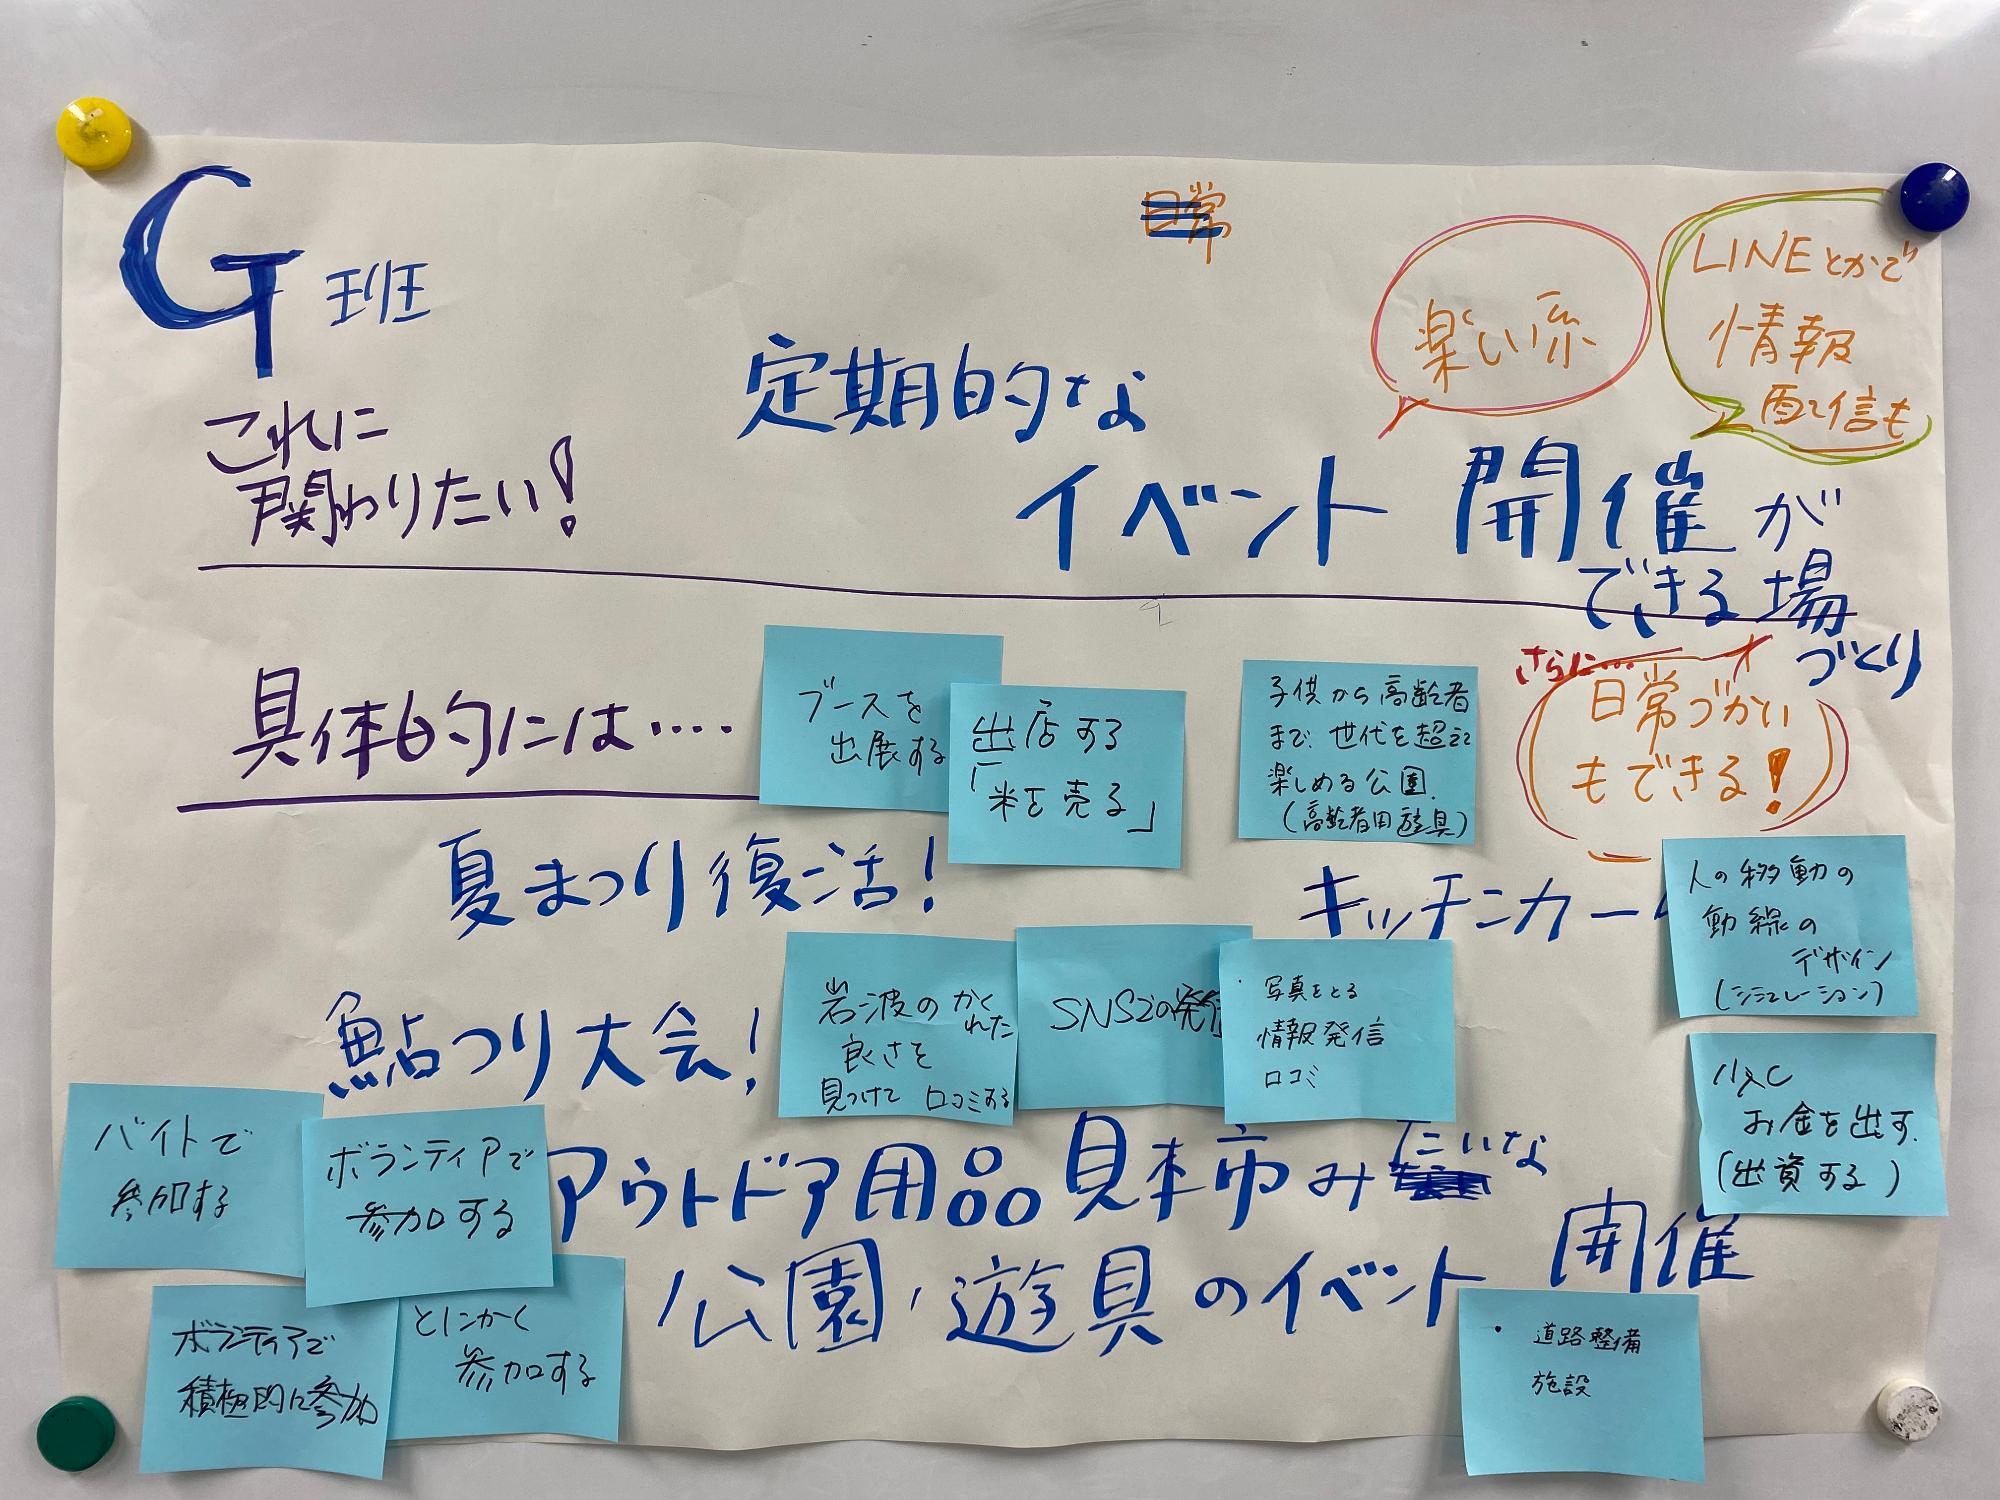 G班
日常
楽しい系
LINEとかで
情報
配信も
これに
関わりたい!
定期的な
イベント開催が
できる場
づくり
さらに…
日常づかい
もできる!
具体的には‥‥
ブースを
出展する
出店する
「米を売る」
子供から高齢者
まで、世代を超えて
楽しめる公園.
(高齢者用遊具)
夏まつり復活!
キッチンカー
人の移動の
動線の
デザイン
(シミュレーション)
鮎つり大会!
岩波のかく
れた
良さを
見つけて 口コミする
SNSでの発信
・写真をとる
情報発信
口コミ
お金を出す.
(出資する)
バイトで
参加する
ボランティアで
参加する
アウトドア用品見本市みたいな
公園,遊具のイベント 開催
ボランティアで
積極的に参加
とにかく
参加する
・道路整備
施設